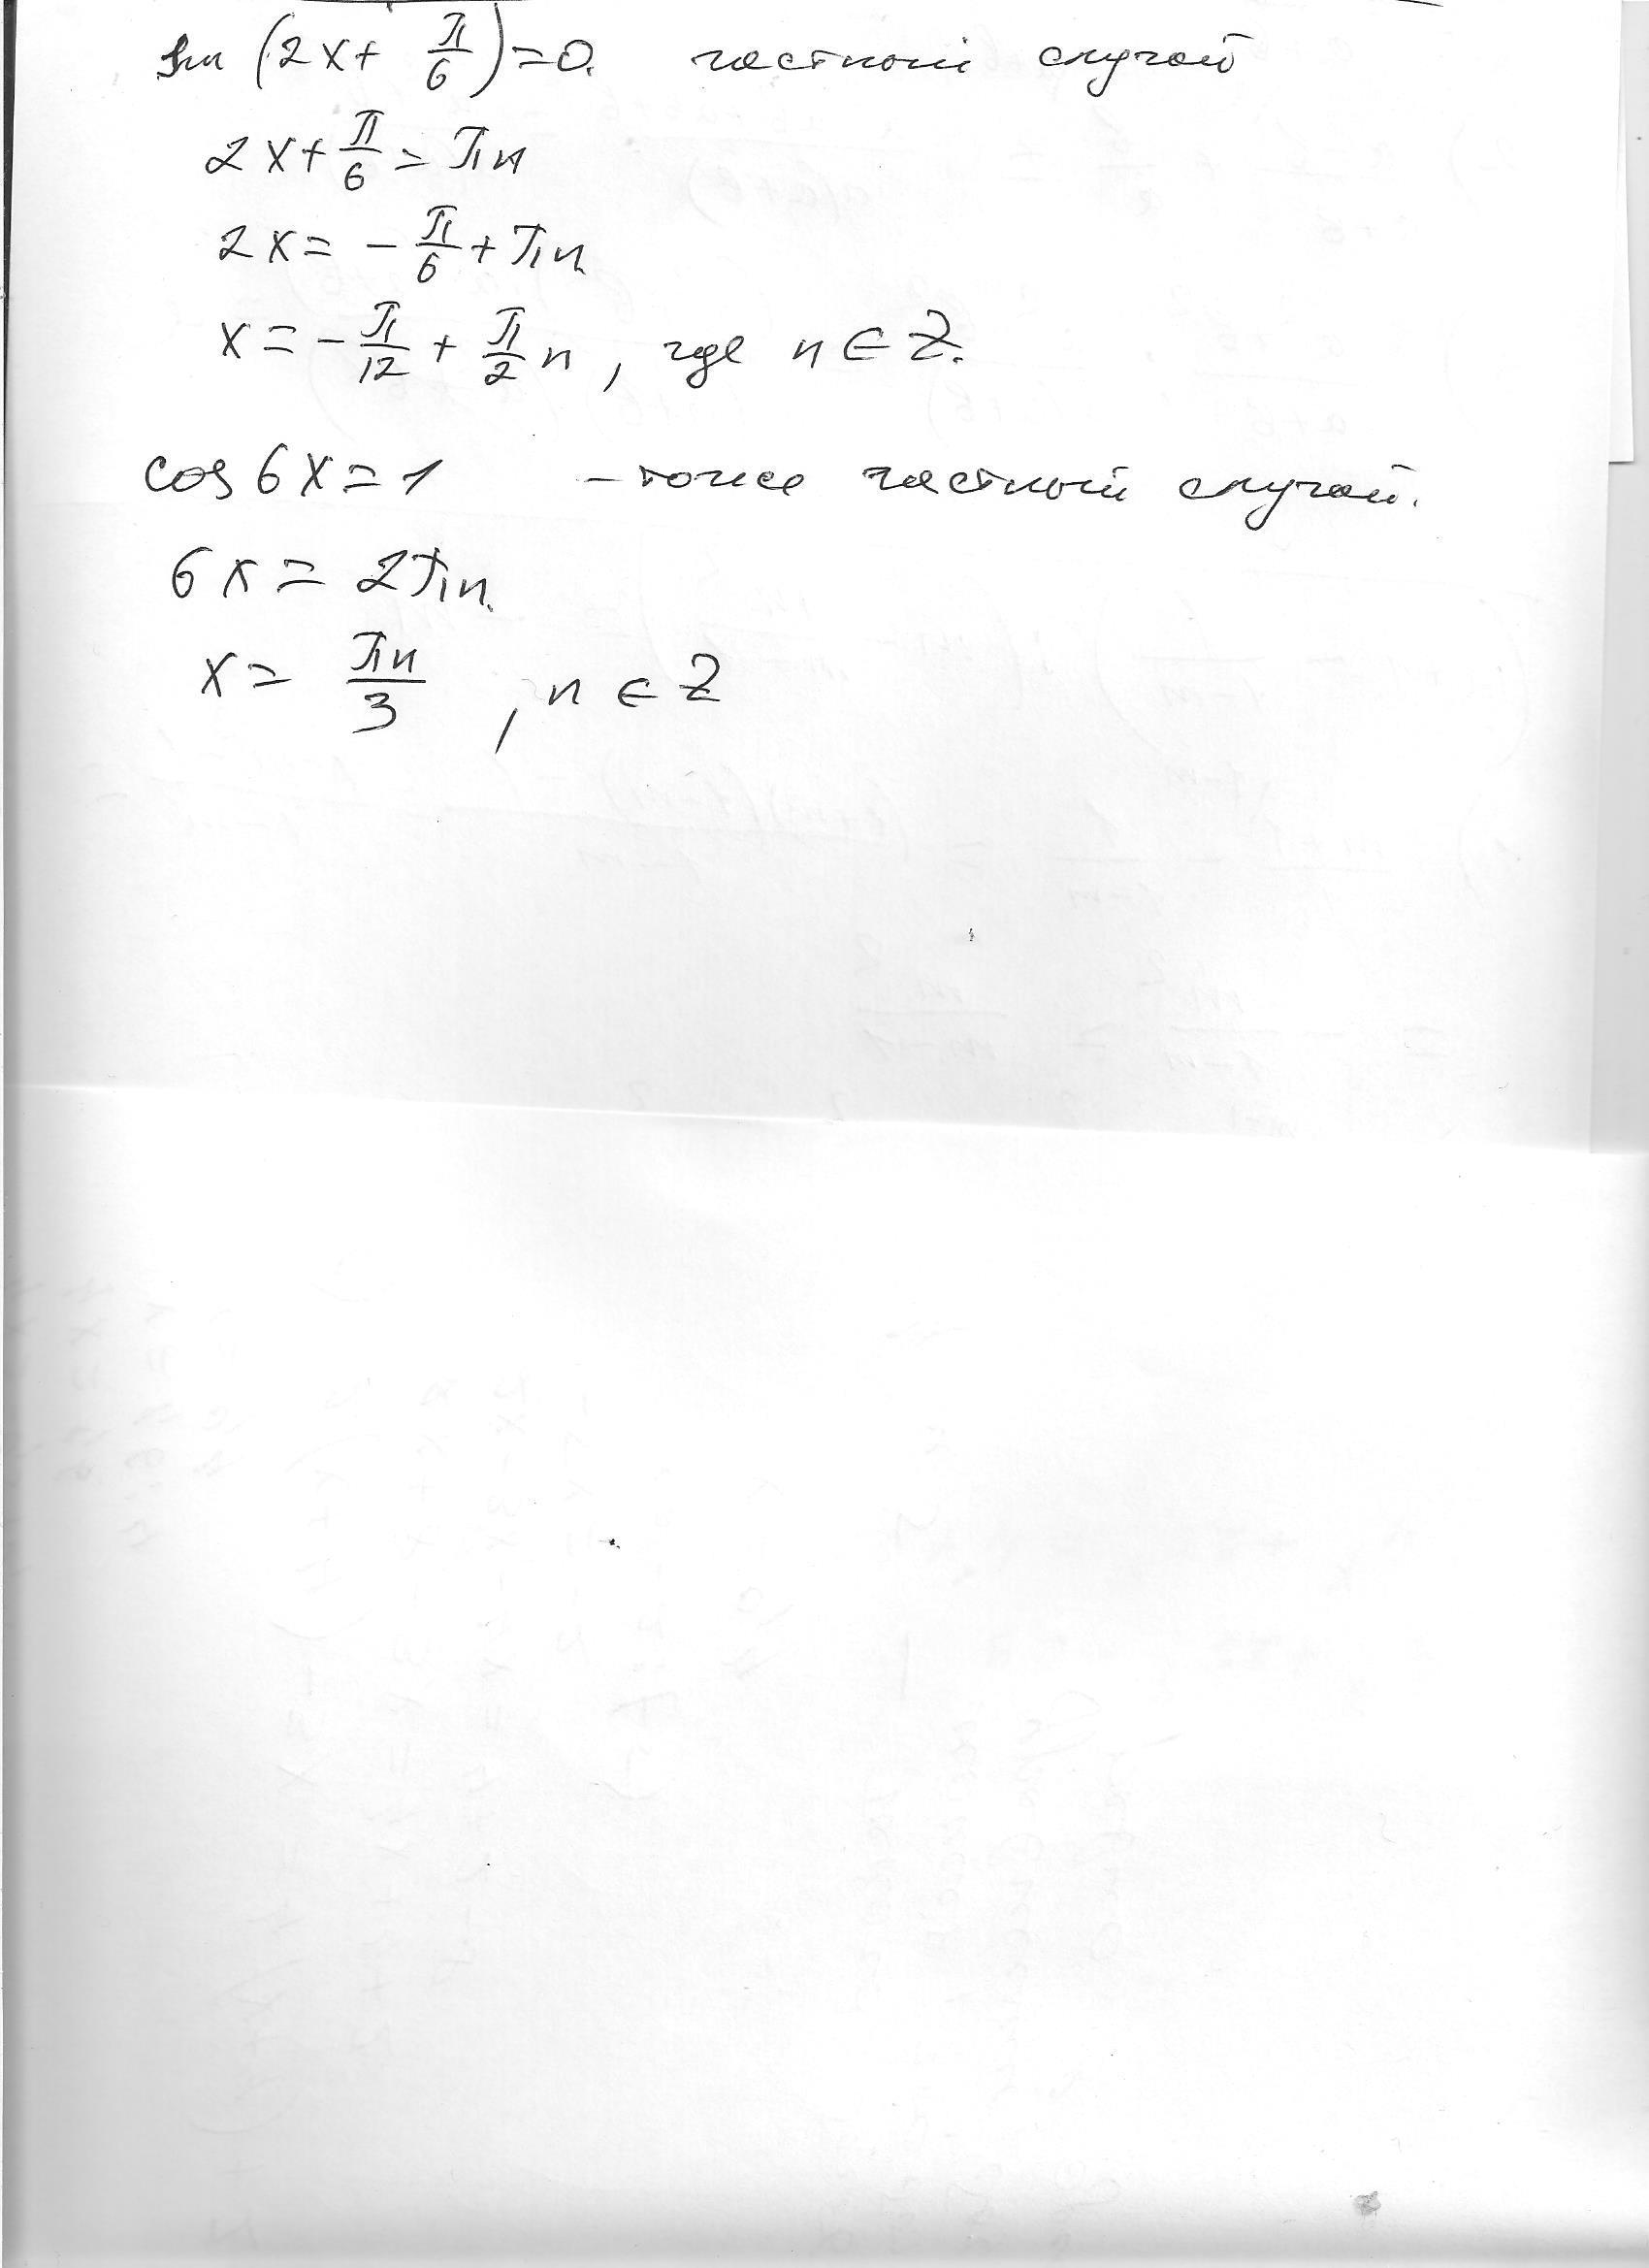 sin (2x + π/6) = 0. частный случай
2x + π/6 = πn
2x = - π/6 + πn
x = - π/12 + π/2 n, где n ∈ Z.
cos 6x = 1 - тоже частный случай.
6x = 2πn
x = πn/3, n ∈ Z